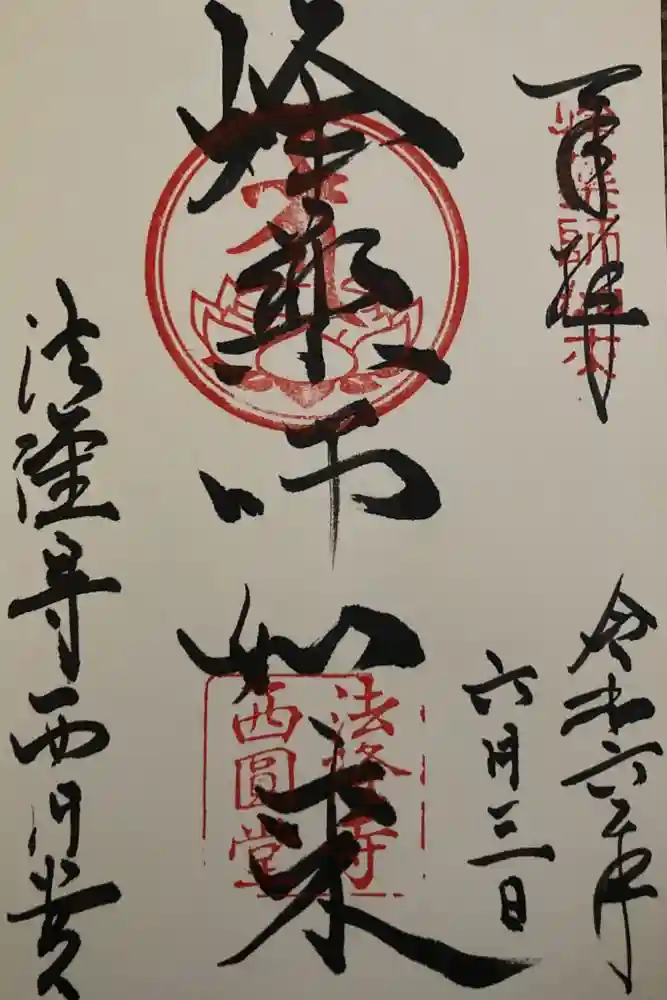 奉拝
令和六年
六月三日
峰薬師如来
法隆寺
西圓堂
法隆寺西円堂